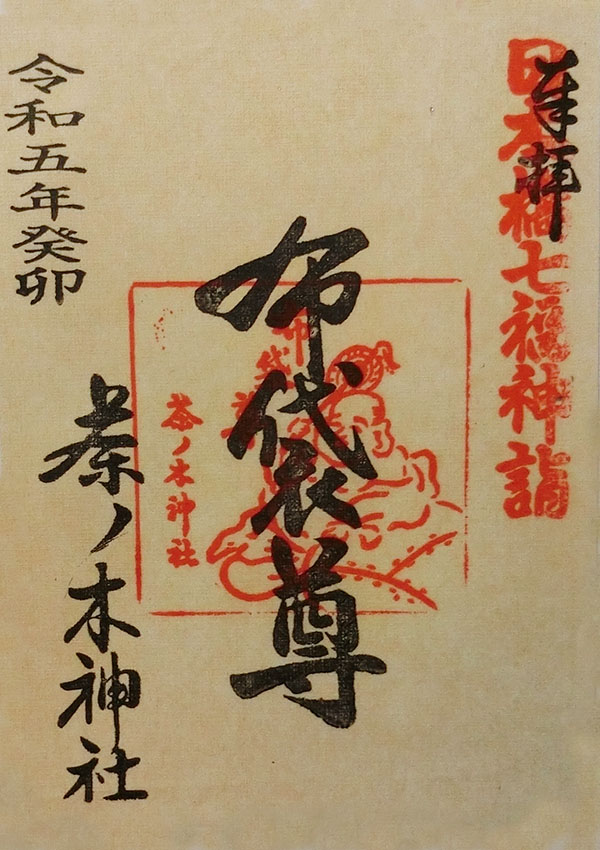 奉拝
日本橋七福神詣
布袋尊
布袋尊
茶ノ木神社
茶ノ木神社
令和五年癸卯